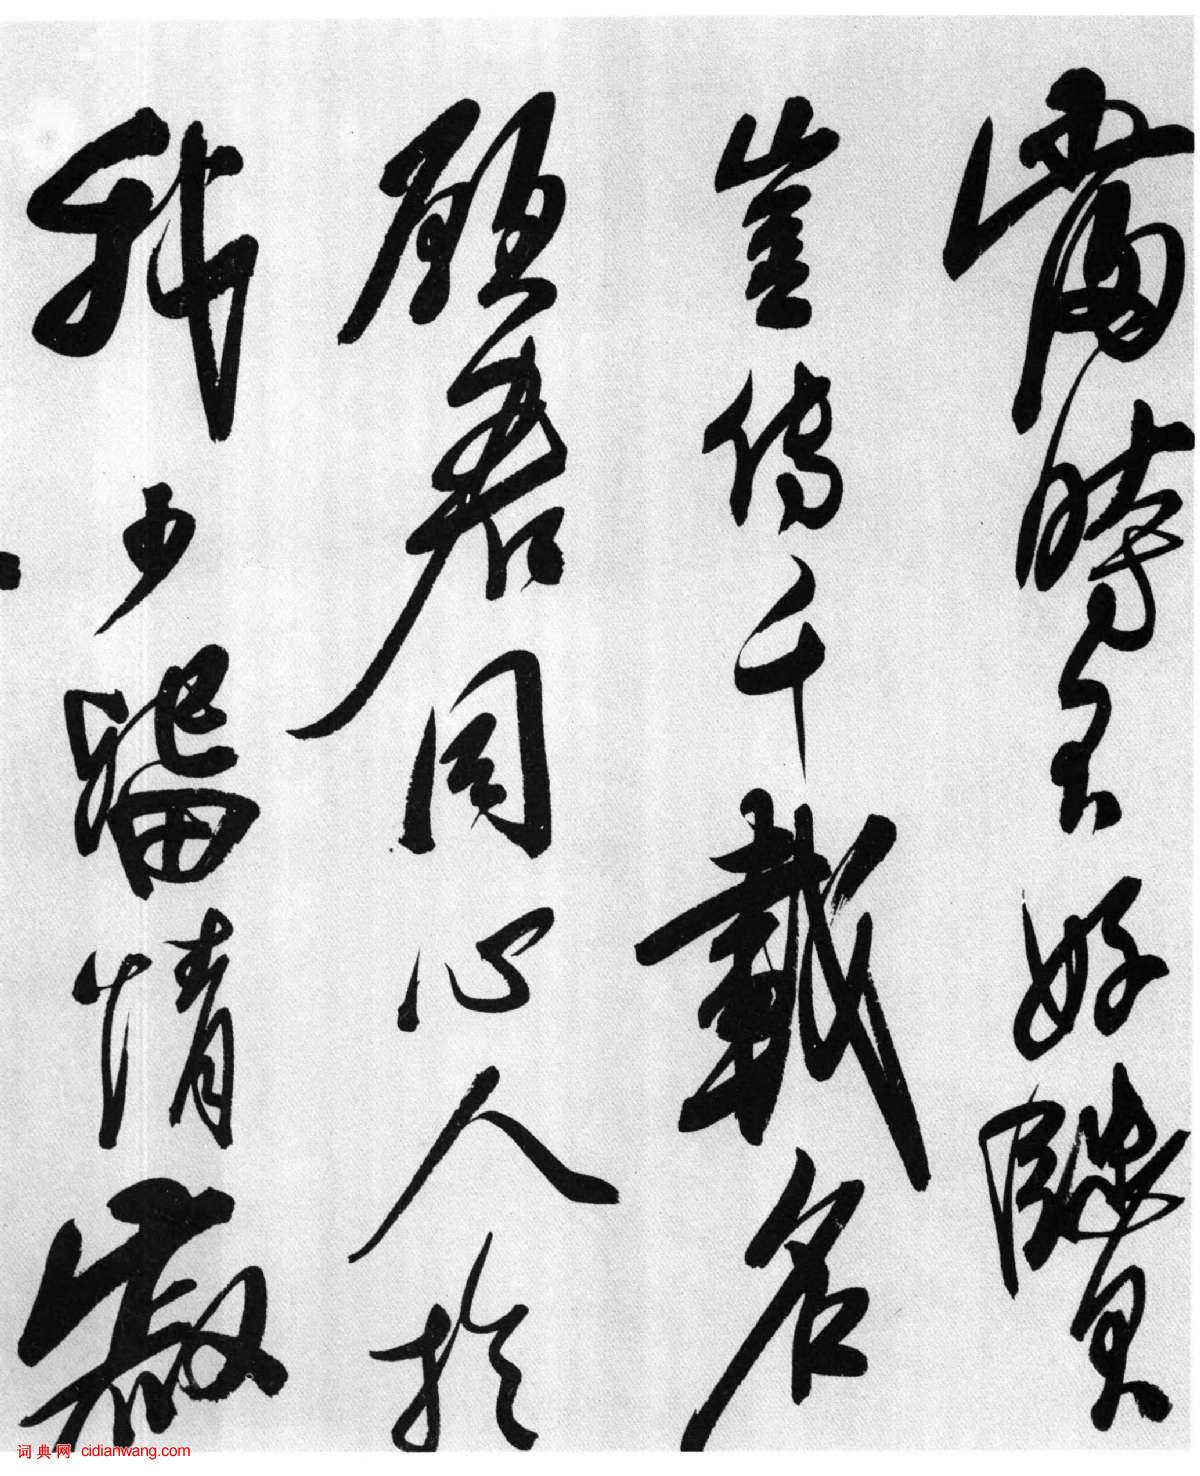 當時不好賢
豈傳千載名
願君同心人
於我少留情
寂
词典网 cidianwang.com